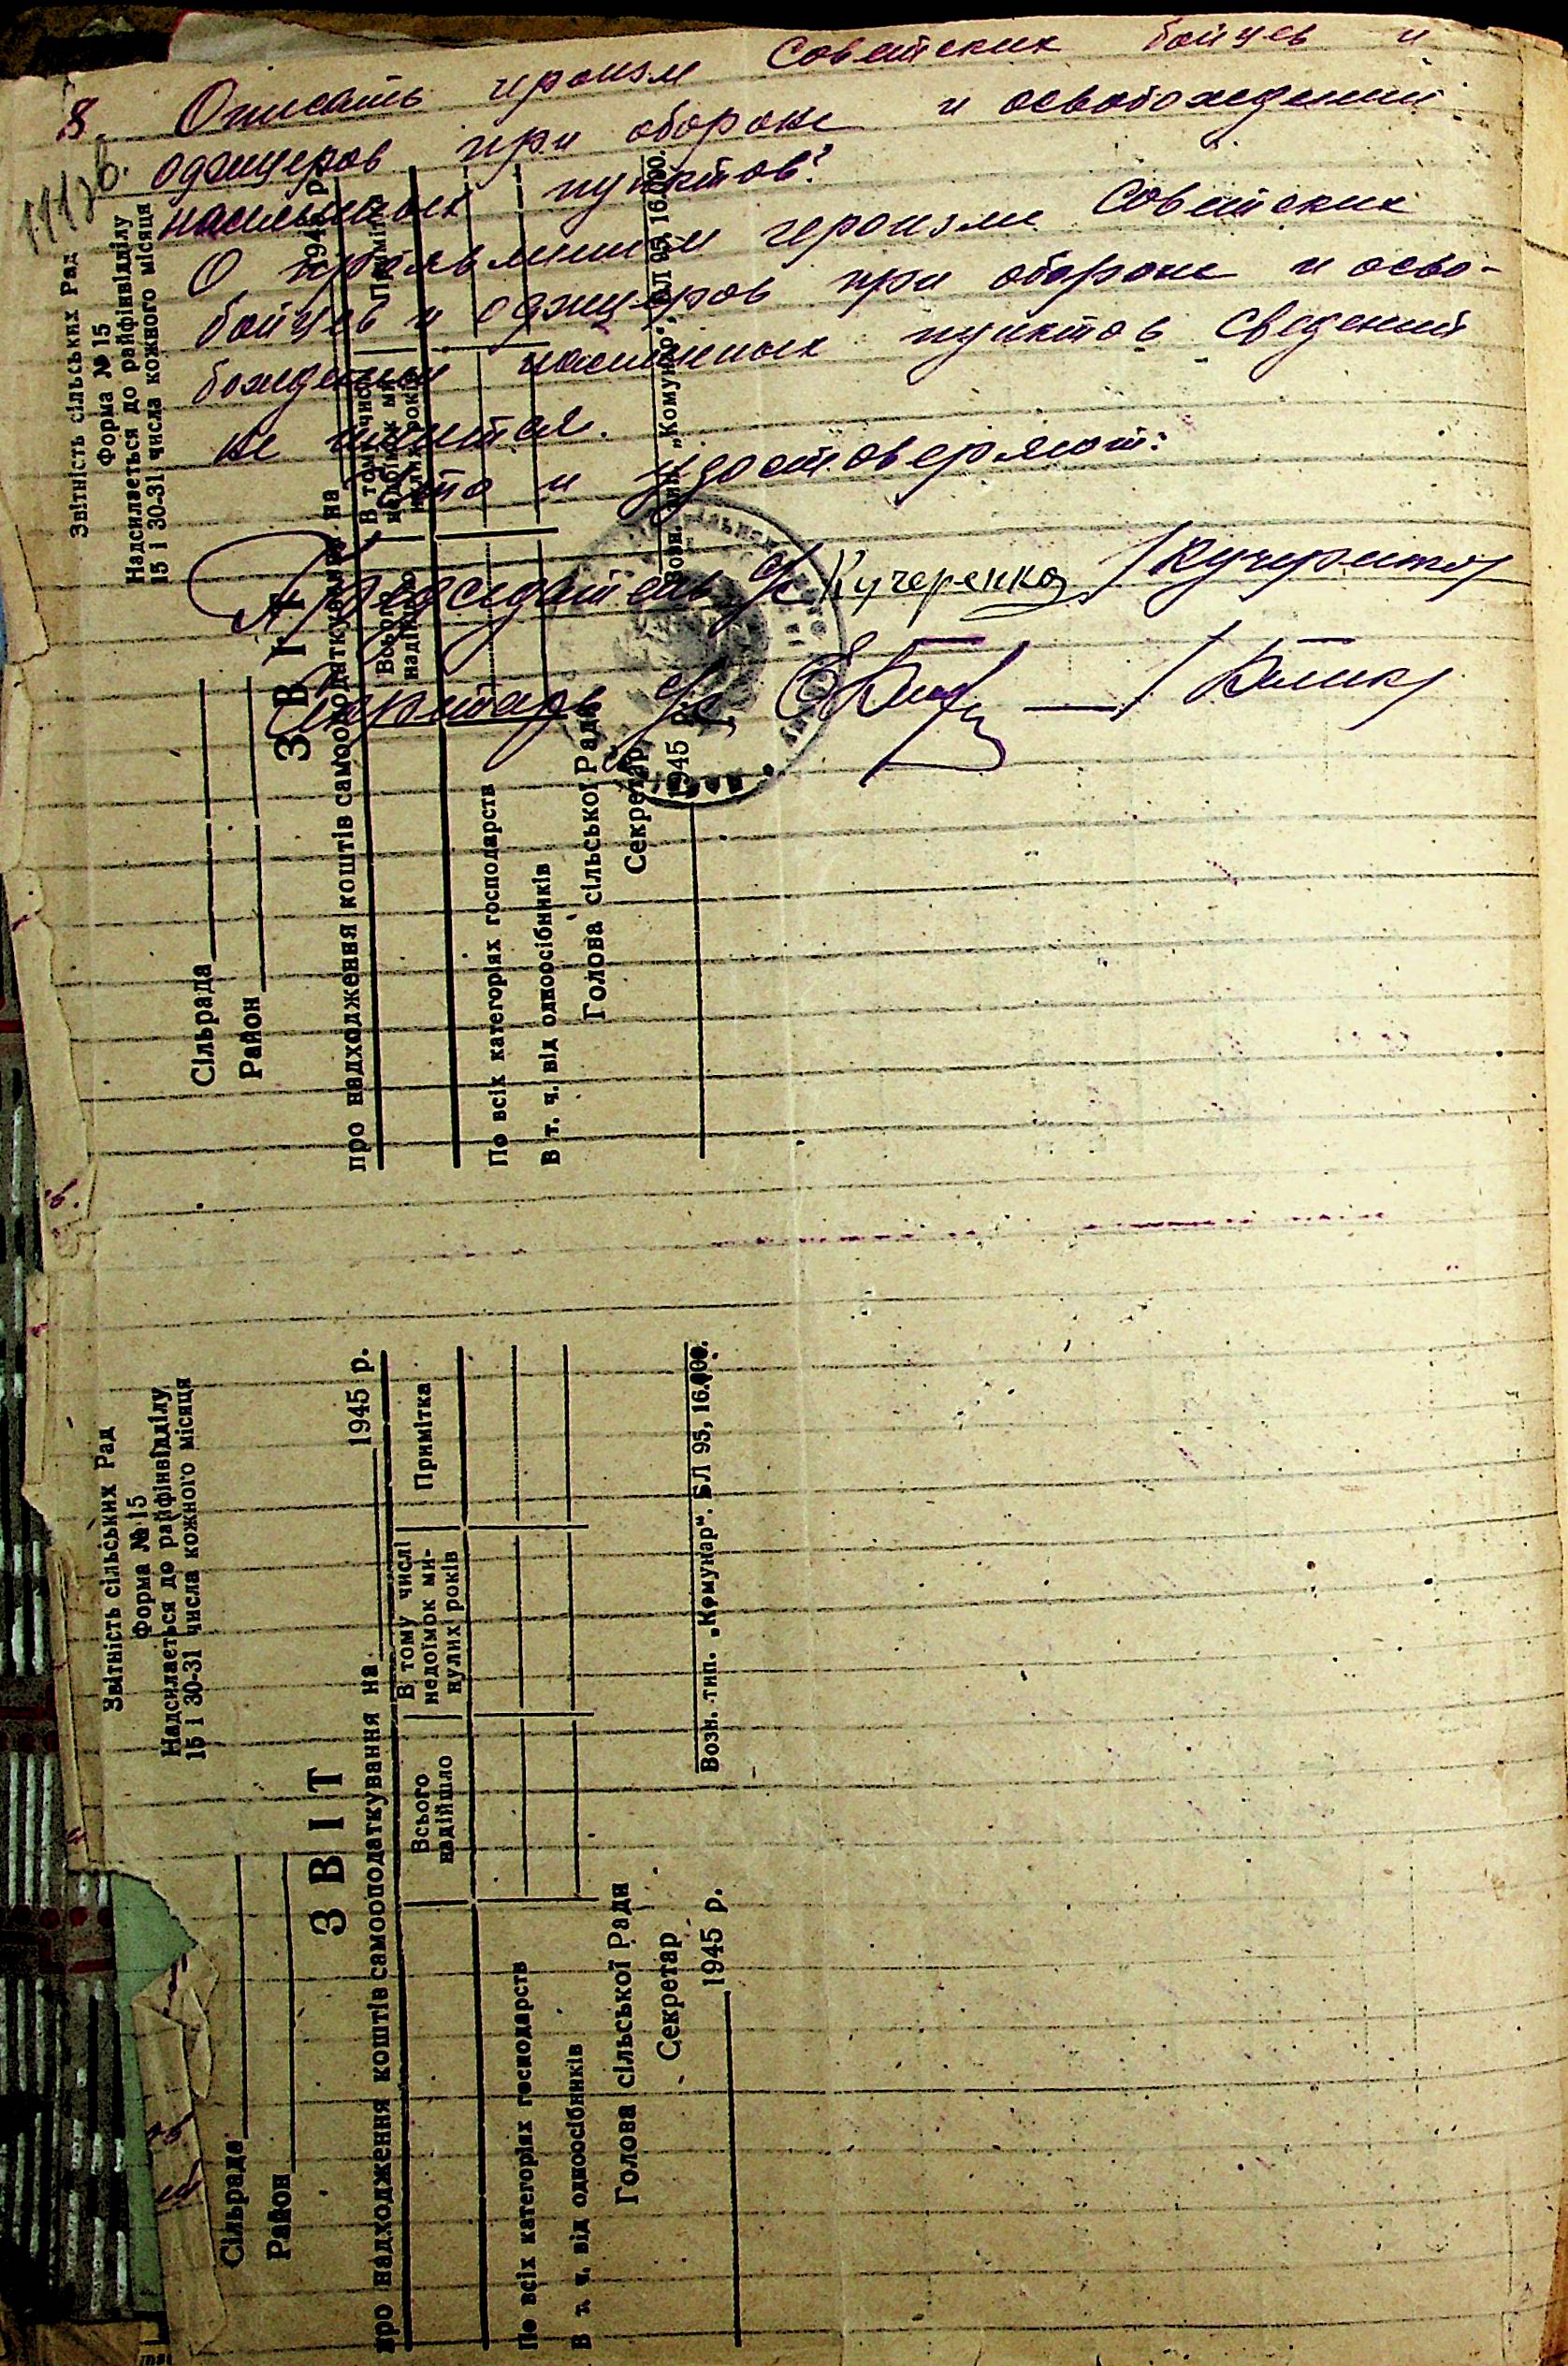 8. Описать героизм Советских бойцев и
офицеров при обороне и освобождении
населенных пунктов?
О проявлении героизме Советских
бойцев и офицеров при обороне и осво-
бождении населенных пунктов сведений
не имеится.
что и удостоверяют:
Председатель с/с Кучеренко /Кучеренко/
Секретарь с/с /Билик/
Звітність сільських Рад
Форма № 15
Надсилається до райфінвідділу
15 і 30-31 числа кожного місяця
Сільрада
Район
ЗВІТ
про надходження коштів самооподаткування на 194 р.
Всього надійшло
В тому числі
недоїмок ми-
нулих років
Примітка
По всіх категоріях господарств
В т. ч. від одноосібників
Голова сільської Ради
Секретар
1945 р.
Возн. тип. „Комунар“. БЛ 95, 16.000.
Звітність сільських Рад
Форма № 15
Надсилається до райфінвідділу
15 і 30-31 числа кожного місяця
Сільрада
Район
ЗВІТ
про надходження коштів самооподаткування на 1945 р.
Всього
надійшло
В тому числі
недоїмок ми-
нулих років
Примітка
По всіх категоріях господарств
В т. ч. від одноосібників
Голова сільської Ради
Секретар
1945 р.
Возн. тип. „Комунар“. БЛ 95, 16.000.